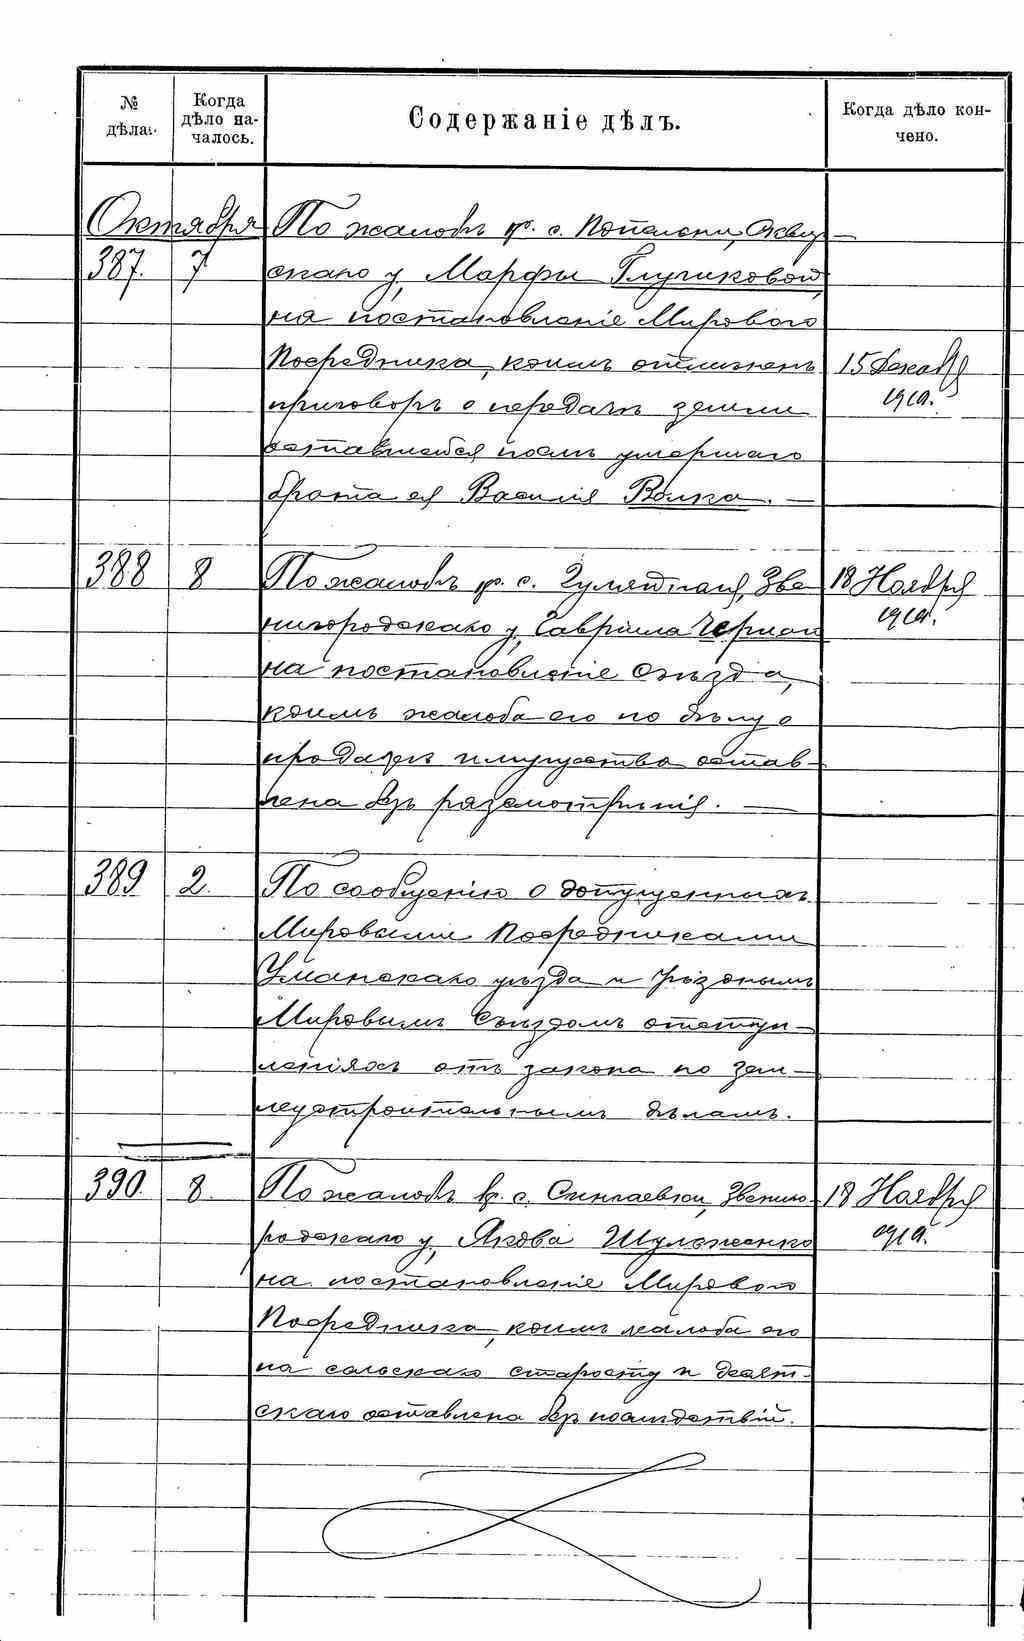 № дѣла. Когда дѣло началось. Содержаніе дѣлъ. Когда дѣло кончено.
Октября По жалобѣ кр. с. Попельни, Сквир-
387. 7 скаго у, Марфы Глущиковой,
на постановленіе Мирового
Посредника, коимъ отмѣненъ 15 Декабря
приговоръ о передачѣ земли 1910.
оставшейся послѣ умершаго
брата ея Василія Волка. —
388 8 По жалобѣ кр. с. Гуляйполя, Зве- 18 Ноября
нигородскаго у, Гавріила Чернаго 1910.
на постановленіе Съѣзда,
коимъ жалоба его по дѣлу о
продажѣ имущества остав-
лена безъ разсмотрѣнія. —
389 2. По сообщенію о допущенныхъ
Мировыми Посредниками
Уманскаго уѣзда и Уѣзднымъ
Мировымъ Съѣздомъ отступ-
леніяхъ отъ закона по зем-
леустроительнымъ дѣламъ.
390. 8. По жалобѣ кр. с. Звениго- 18 Ноября
родскаго у, Якова Шулеженко 1910.
на постановленіе Мирового
Посредника, коимъ жалоба его
на сельскаго старосту и десят-
скаго оставлена безъ послѣдствій.